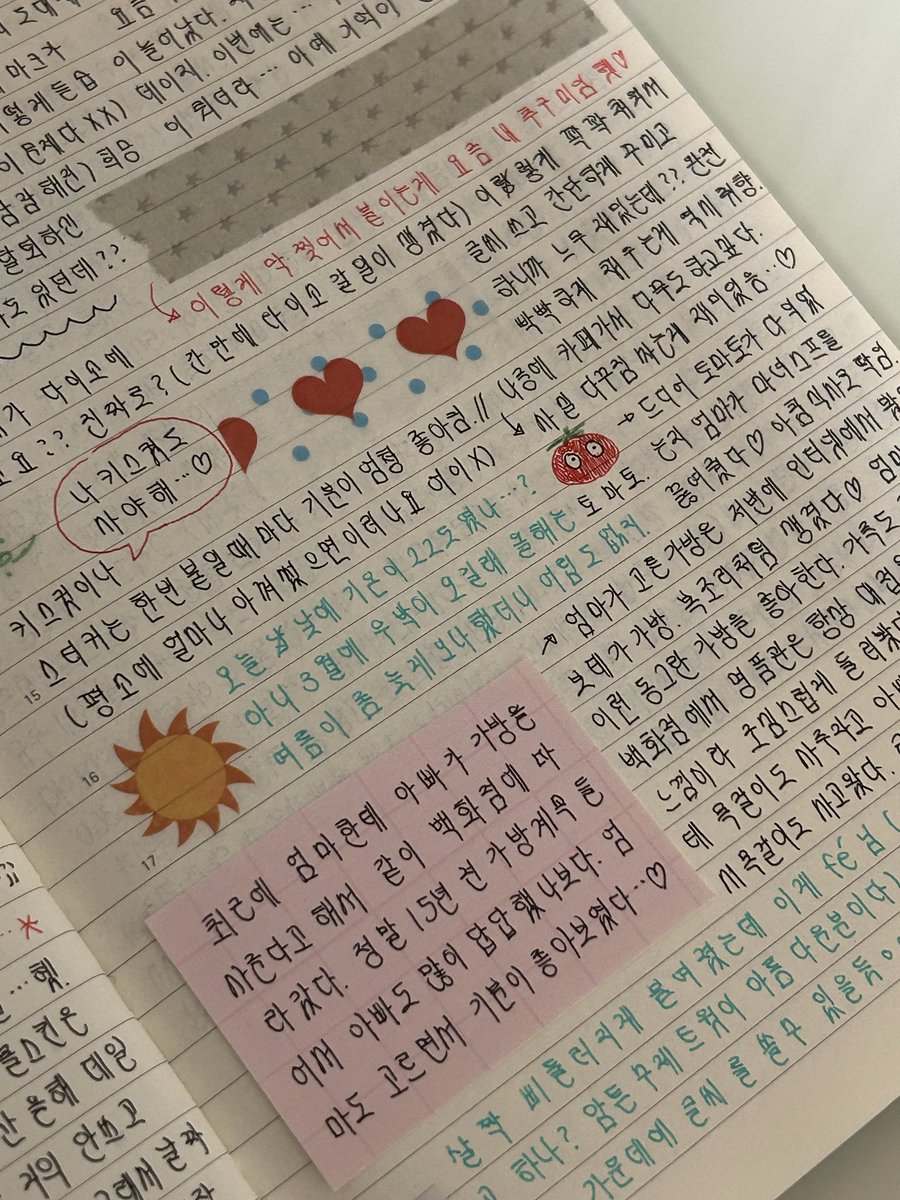 요즘
마크가
이 늘어났다.
데이지. 이번에는…
이 뭐더라… 아예 기억이 안
도 있던데??
→ 이렇게 막 찢어서 붙이는게 요즘 내 추구미점 헷♡
가 다이소에
요?? 진짜로? (간만에 다이소 갈일이 생겼다) 이렇게 꽉꽉 채워서
글씨 쓰고 간단하게 꾸미고
하니까 느무 재밌는데?? 완전
빡빡하게 채우는게 역시 취향.
나 키스컷도
사야해…♡
키스컷이나
스티커는 한번 붙일때마다 기분이 엄청 좋아짐// (나중에 카페가서 다꾸도 하고싶다.
(평소에 얼마나 아껴썼으면 이러나요 어이X)
↘ 사실 다꾸짐 싸는게 재미있음..♡
→ 드디어 토마토가 다 익었
토마토. 는지 엄마가 마녀스프를
끓여줬다♡ 아침식사로 딱임.
오늘 낮에 기온이 22도였나…?
아니 3월에 우박이 오길래 올해는
여름이 좀 늦게 오나 했더니 어림도 없지.
↗ 엄마가 고른가방은 저번에 인터넷에서 봤
보테가 가방. 복조리처럼 생겼다♡ 엄마
이런 동그란 가방을 좋아한다. 가족도
백화점에서 명품관은 항상
느낌이라 조심스럽게 들러봤
테 목걸이도 사주라고
목걸이도 사고왔다.
15
16
17
최근에 엄마한테 아빠가 가방을
사준다고 해서 같이 백화점에 따
라갔다. 정말 15년 전 가방계속 들
어서 아빠도 많이 답답했나보다. 엄
마도 고르면서 기분이 좋아보였다…♡
살짝 삐뚤러지게 붙여졌는데 이제 fé님 (
고 하나? 암튼 무제 트웜이 아름다운분이다)
가운데에 글씨를 쓸수 있을듯。
…헷.
플스컨은
올해 데일
거의 안쓰고
그래서 날짜